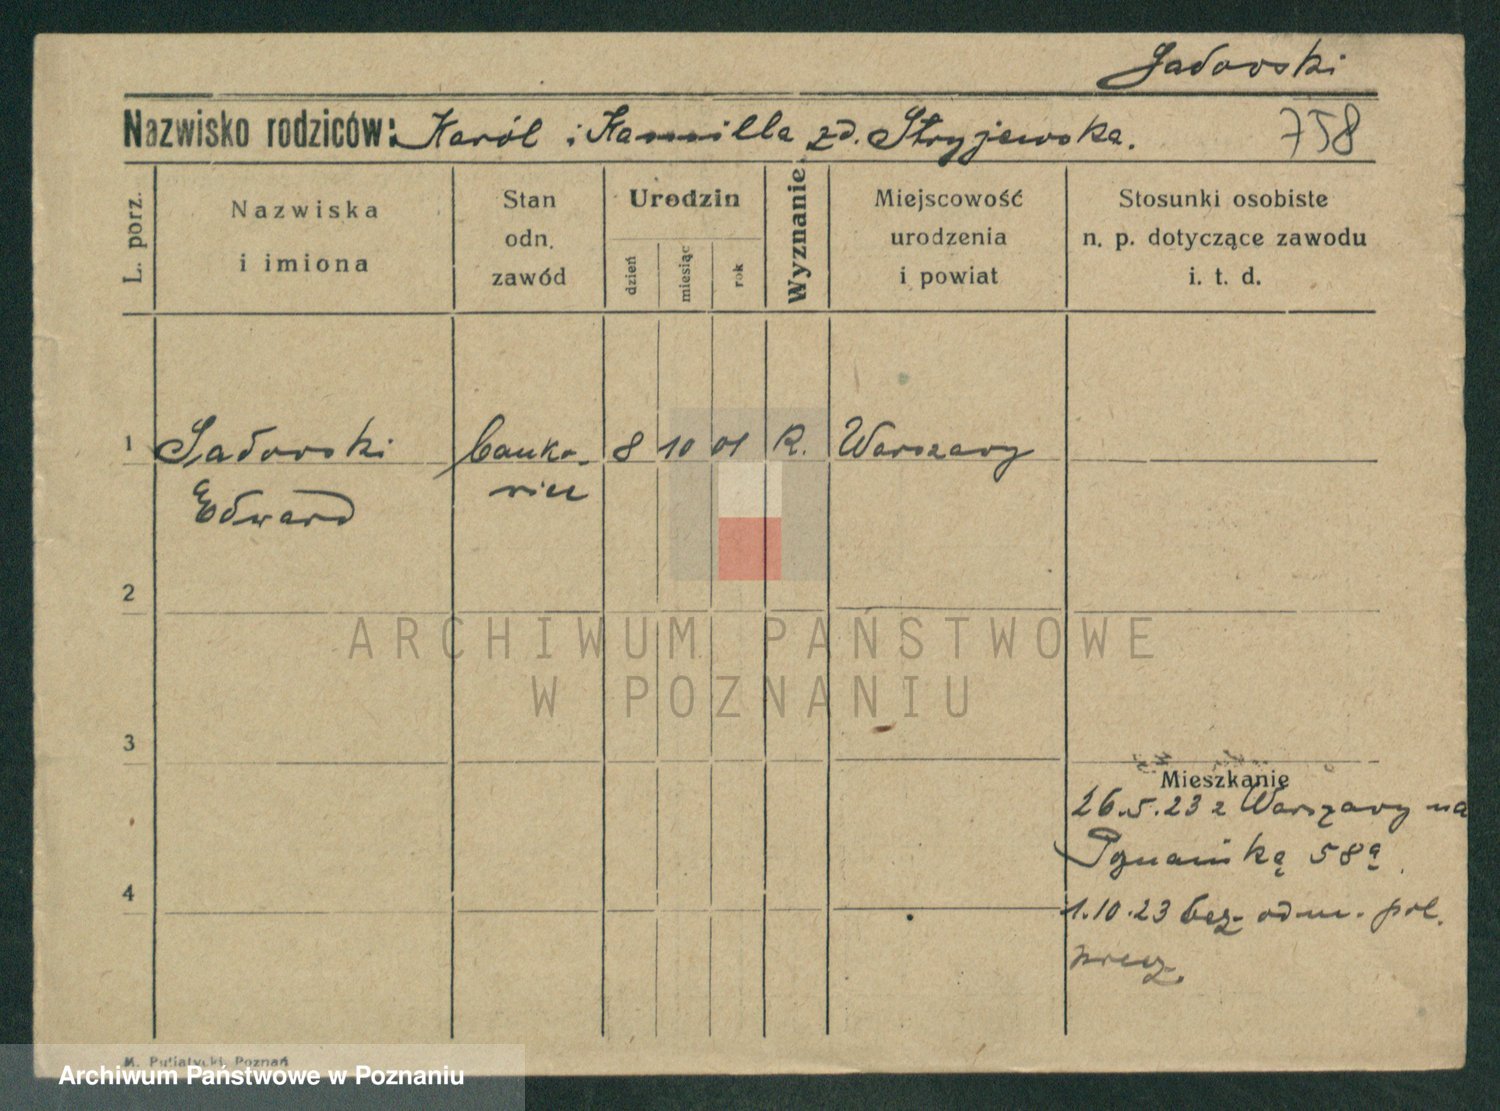 Sadowski
Nazwisko rodziców: Karól i Kamilla zd. Stryjewska.
758
L. porz.
Nazwiska
i imiona
Stan
odn.
zawód
Urodzin
dzień
miesiąc
rok
Wyznanie
Miejscowość
urodzenia
i powiat
Stosunki osobiste
n. p. dotyczące zawodu
i. t. d.
1 Sadowski banko- 8 10 01 R. Warszawy
Edward wiec
2
ARCHIWUM PAŃSTWOWE
W POZNANIU
3
Mieszkanie
26.5.23 z Warszawy na
58a
4
1.10.23 bez odm. pol.
precz.
M. Putiatycki, Poznań
Archiwum Państwowe w Poznaniu